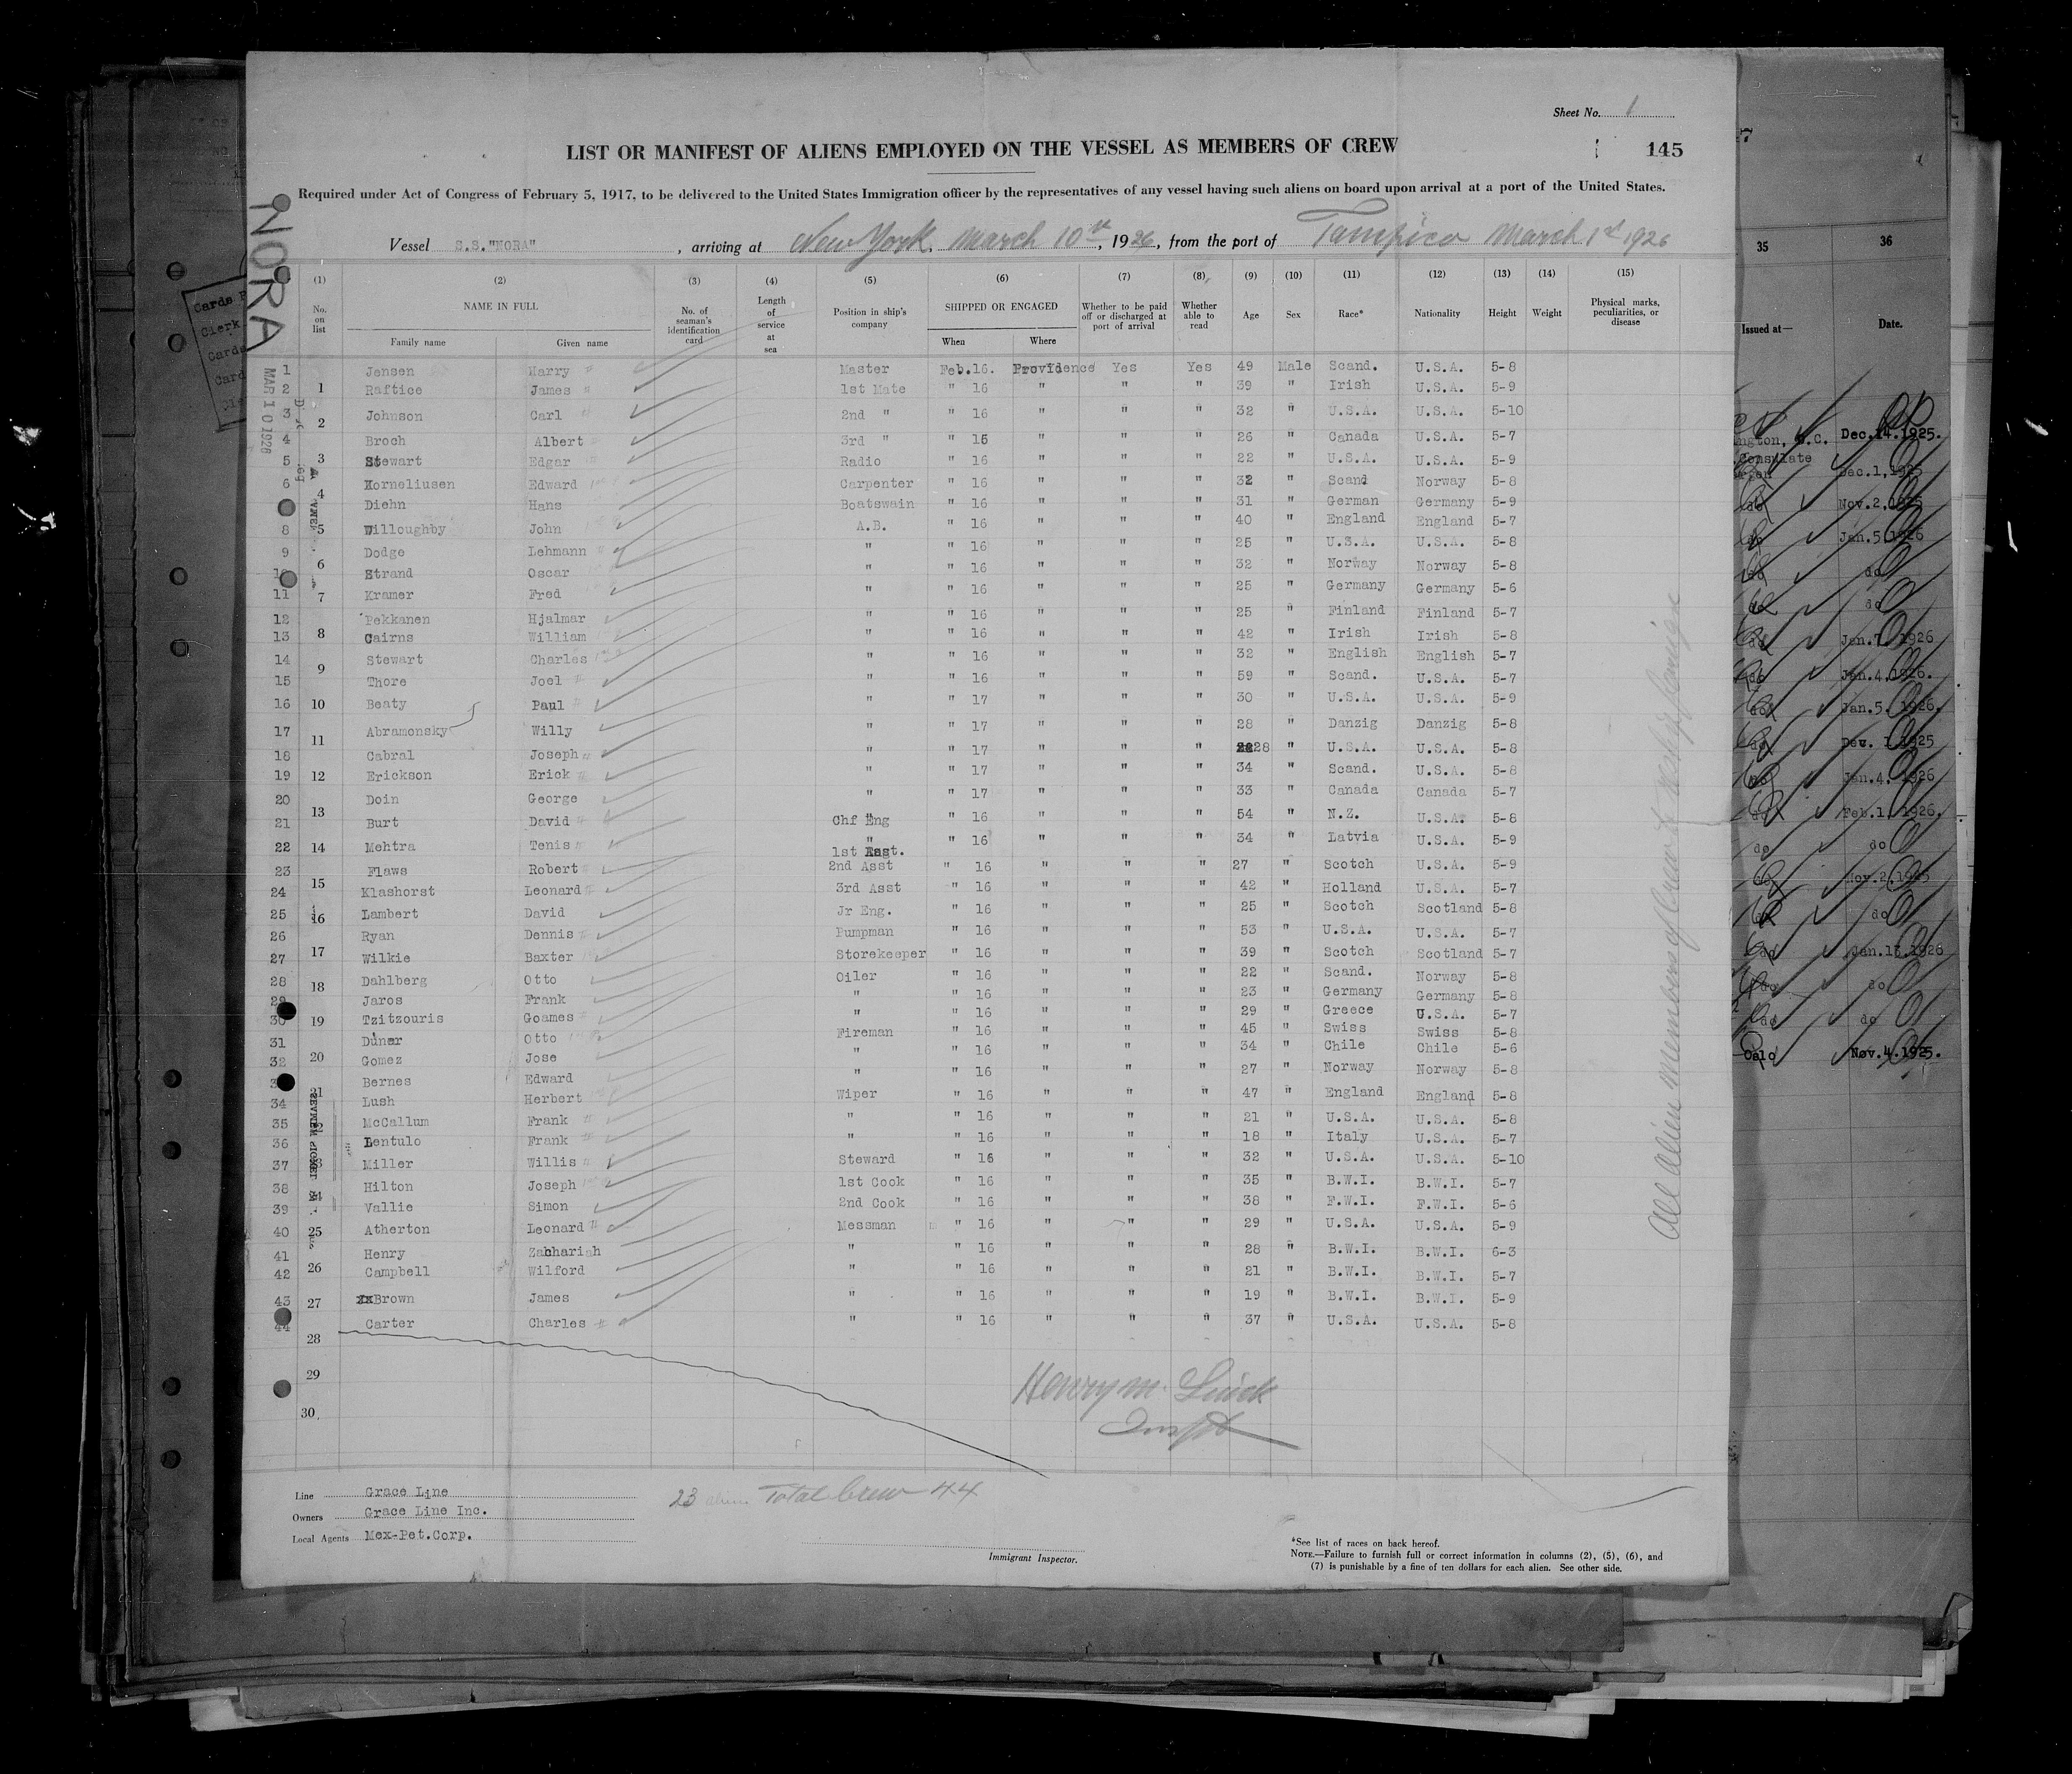 Sheet No. 1
LIST OR MANIFEST OF ALIENS EMPLOYED ON THE VESSEL AS MEMBERS OF CREW
145
Required under Act of Congress of February 5, 1917, to be delivered to the United States Immigration officer by the representatives of any vessel having such aliens on board upon arrival at a port of the United States.
Vessel S.S."NORA", arriving at New York, March 10th, 1926, from the port of Tampico March 1st 1926
NORA
MAR 10 1926
(1) (2) (3) (4) (5) (6) (7) (8) (9) (10) (11) (12) (13) (14) (15)
No. on list NAME IN FULL No. of seaman's identification card Length of service at sea Position in ship's company SHIPPED OR ENGAGED Whether to be paid off or discharged at port of arrival Whether able to read Age Sex Race* Nationality Height Weight Physical marks, peculiarities, or disease
Family name Given name When Where
1 Jensen Harry Master Feb.16. Providence Yes Yes 49 Male Scand. U.S.A. 5-8
2 Raftice James 1st Mate " 16 " " " 39 " Irish U.S.A. 5-9
3 Johnson Carl 2nd " " 16 " " " 32 " U.S.A. U.S.A. 5-10
4 Broch Albert 3rd " " 15 " " " 26 " Canada U.S.A. 5-7
5 Stewart Edgar Radio " 16 " " " 22 " U.S.A. U.S.A. 5-9
6 Korneliusen Edward Carpenter " 16 " " " 32 " Scand Norway 5-8
Diehn Hans Boatswain " 16 " " " 31 " German Germany 5-9
8 Willoughby John A.B. " 16 " " " 40 " England England 5-7
9 Dodge Lehmann " " 16 " " " 25 " U.S.A. U.S.A. 5-8
10 Strand Oscar " " 16 " " " 32 " Norway Norway 5-8
11 Kramer Fred " " 16 " " " 25 " Germany Germany 5-6
12 Pekkanen Hjalmar " " 16 " " " 25 " Finland Finland 5-7
13 Cairns William " " 16 " " " 42 " Irish Irish 5-8
14 Stewart Charles " " 16 " " " 32 " English English 5-7
15 Thore Joel " " 16 " " " 59 " Scand. U.S.A. 5-7
16 Beaty Paul " " 17 " " " 30 " U.S.A. U.S.A. 5-9
17 Abramonsky Willy " " 17 " " " 28 " Danzig Danzig 5-8
18 Cabral Joseph " " 17 " " " 28 " U.S.A. U.S.A. 5-8
19 Erickson Erick " " 17 " " " 34 " Scand. U.S.A. 5-8
20 Doin George " " 17 " " " 33 " Canada Canada 5-7
21 Burt David Chf Eng " 16 " " " 54 " N.Z. U.S.A. 5-8
22 Mehtra Tenis 1st Asst. " 16 " " " 34 " Latvia U.S.A. 5-9
23 Flaws Robert 2nd Asst " 16 " " " 27 " Scotch U.S.A. 5-9
24 Klashorst Leonard 3rd Asst " 16 " " " 42 " Holland U.S.A. 5-7
25 Lambert David Jr Eng. " 16 " " " 25 " Scotch Scotland 5-8
26 Ryan Dennis Pumpman " 16 " " " 53 " U.S.A. U.S.A. 5-7
27 Wilkie Baxter Storekeeper " 16 " " " 39 " Scotch Scotland 5-7
28 Dahlberg Otto Oiler " 16 " " " 22 " Scand. Norway 5-8
29 Jaros Frank " " 16 " " " 23 " Germany Germany 5-8
30 Tzitzouris Goames " " 16 " " " 29 " Greece U.S.A. 5-7
31 Duner Otto Fireman " 16 " " " 45 " Swiss Swiss 5-8
32 Gomez Jose " " 16 " " " 34 " Chile Chile 5-6
Bernes Edward " " 16 " " " 27 " Norway Norway 5-8
34 Lush Herbert Wiper " 16 " " " 47 " England England 5-8
35 McCallum Frank " " 16 " " " 21 " U.S.A. U.S.A. 5-8
36 Lentulo Frank " " 16 " " " 18 " Italy U.S.A. 5-7
37 Miller Willis Steward " 16 " " " 32 " U.S.A. U.S.A. 5-10
38 Hilton Joseph 1st Cook " 16 " " " 35 " B.W.I. B.W.I. 5-7
39 Vallie Simon 2nd Cook " 16 " " " 38 " F.W.I. F.W.I. 5-6
40 Atherton Leonard Messman " 16 " " " 29 " U.S.A. U.S.A. 5-9
41 Henry Zachariah " " 16 " " " 28 " B.W.I. B.W.I. 6-3
42 Campbell Wilford " " 16 " " " 21 " B.W.I. B.W.I. 5-7
43 Brown James " " 16 " " " 19 " B.W.I. B.W.I. 5-9
44 Carter Charles " " 16 " " " 37 " U.S.A. U.S.A. 5-8
28
29
30
All Alien members of Crew
Henry M.
Inspt
Line Grace Line
Owners Grace Line Inc.
Local Agents Mex-Pet.Corp.
23 aliens Total Crew 44
Immigrant Inspector.
*See list of races on back hereof.
NOTE.—Failure to furnish full or correct information in columns (2), (5), (6), and
(7) is punishable by a fine of ten dollars for each alien. See other side.
35 36
Issued at— Date.
Dec.14.1925.
Consulate
Dec.1,1925
do Nov.2,1925
Jan.5,1926
do
do
Jan.7, 1926
do Jan.4,1926.
do Jan.5. 1926.
do Dev. 1.1925
do Jan.4. 1926
Feb.1, 1926.
do do
do Nov.2,1925
do do
do Jan.13.1926
do do
do do
Oslo Nov.4.1925.